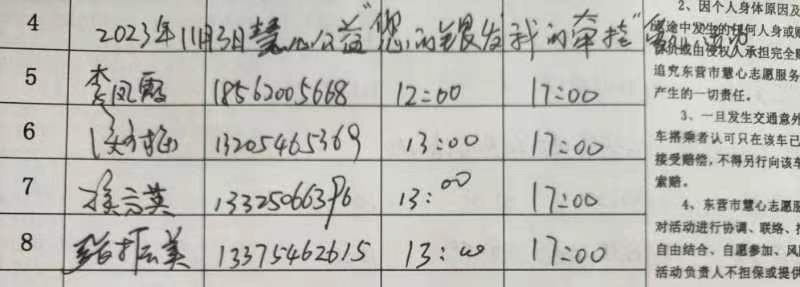 4 2023年11月3日慧心公益“您的银发我的牵挂”
5 李凤霞 18562005668 12:00 17:00
6 13205465369 13:00 17:00
7 英 13325066396 13:00 17:00
8 振美 13375462615 13:00 17:00
2、因个人身体原因及
途中发生的任何人身或财
担或由侵权人承担完全赔
追究东营市慧心志愿服务
产生的一切责任。
3、一旦发生交通意外
车搭乘者认可只在该车已
接受赔偿,不得另行向该车
索赔。
4、东营市慧心志愿服
对活动进行协调、联络、
自由结合、自愿参加、风
活动负责人不担保或提供